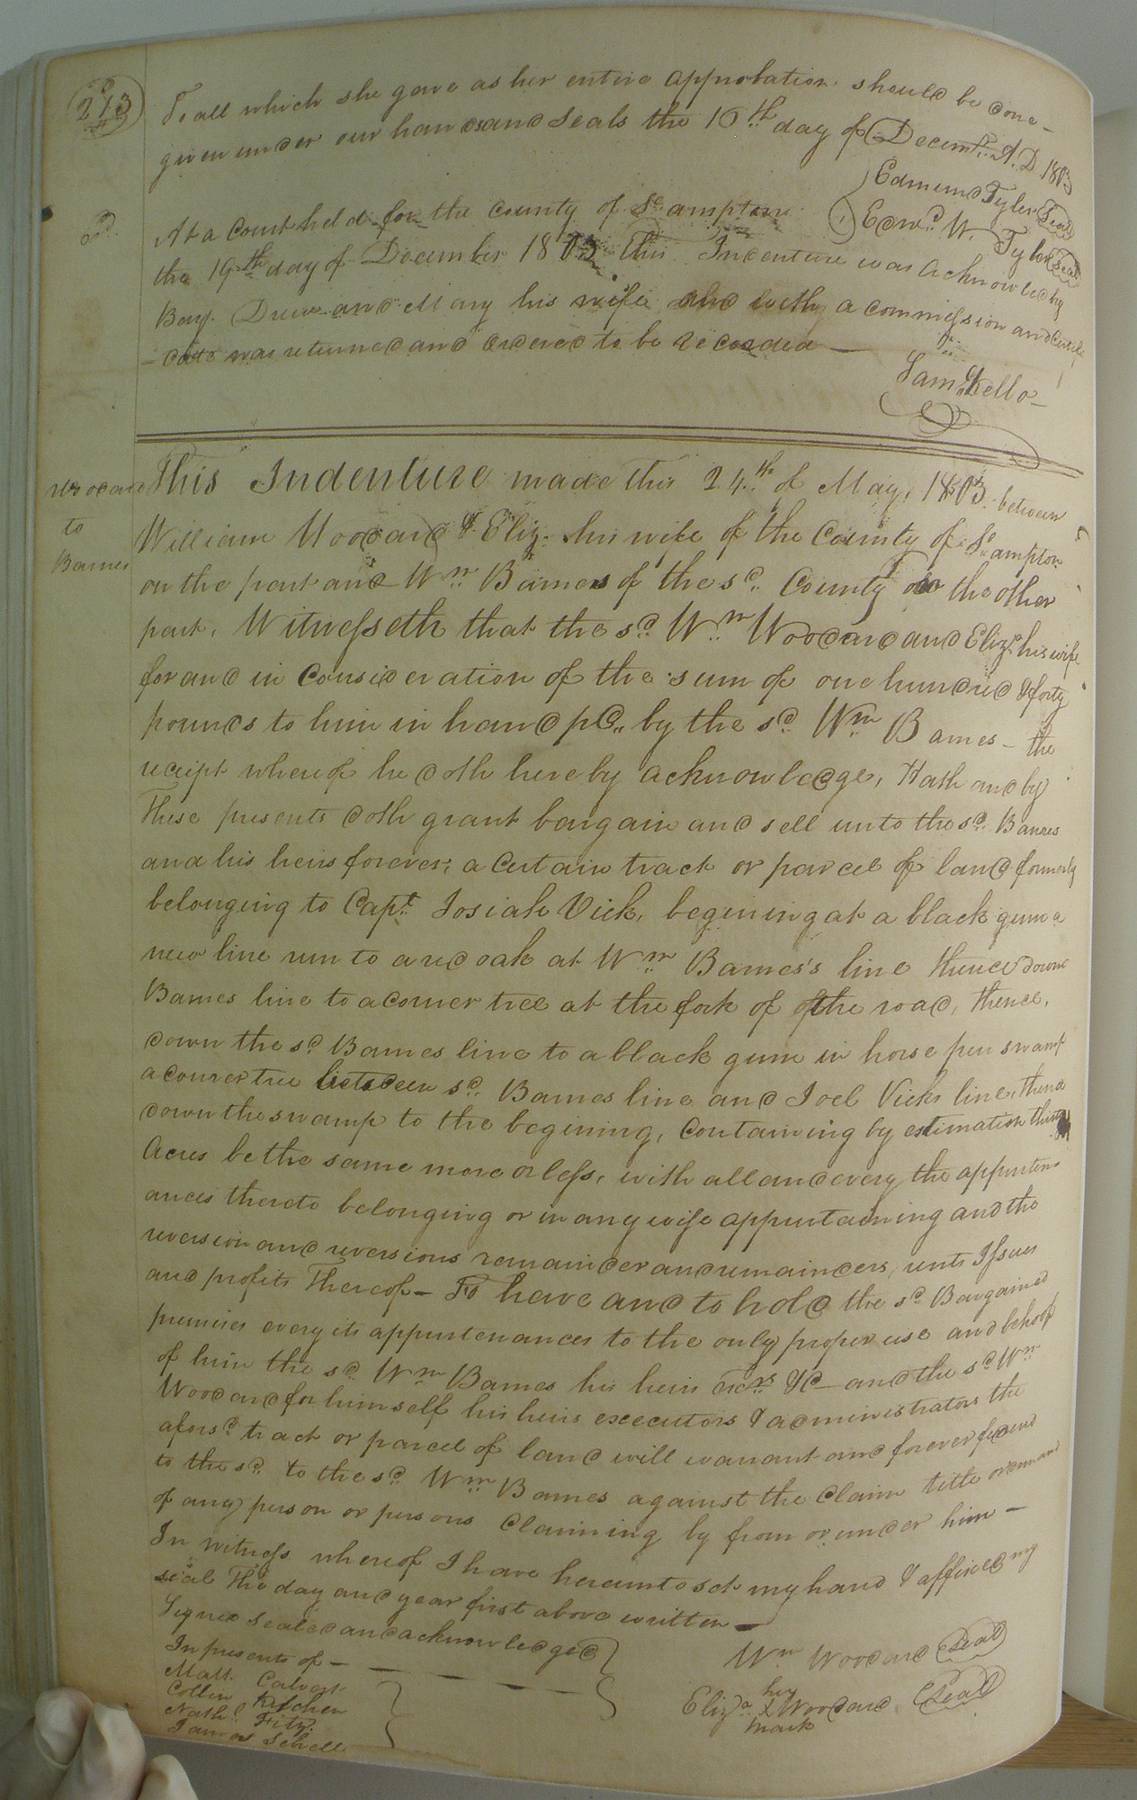 213
To all which she gave as her entire approbation should be done –
given under our hands and Seals the 16th day of Decemr. A.D. 1803
Edmund Tyler Seal
Edwd. W. Tyler Seal
At a Court held for the County of So ampton
the 19th day of December 1803 This Indenture was Acknowledg
Benj. Drew and Mary his wife and with a commission and Certifi
– cate was returned and ordered to be Recorded —
Sam Kello –
Woodard
to
Barnes
This Indenture made this 24th of May, 1803 between
William Woodard & Eliz. his wife of the County of So ampton
on the part and Wm Barnes of the sd. County on the other
part, Witnesseth that the sd Wm Woodard and Eliza his wife
for and in Consideration of the sum of one hundred & forty
pounds to him in hand pd. by the sd. Wm Barnes – the
receipt whereof he doth hereby acknowledge, Hath and by
These presents doth grant bargain and sell unto the sd. Barnes
and his heirs forever, a Certain track or parcel of land formerly
belonging to Capt. Josiah Vick, begining at a black gum a
new line run to a red oak at Wm Barnes's line thence down
Barnes line to a corner tree at the fork of of the road, thence,
down the sd Barnes line to a black gum in horse pen swamp
a corner tree between sd. Barnes line and Joel Vicks line, thence
down the swamp to the begining, Containing by estimation thirty
Acres be the same more or less, with all and every the appurten
ances thereto belonging or in any wise appurtaining and the
reversion and reversions remainder and remainders, rents Issues
and profits Thereof – To have and to hold the sd Bargained
premises every its appurtenances to the only proper use and behoof
of him the sd. Wm Barnes his heirs Exrs &c – and the sd Wm
Woodard for himself his heirs executors & administrators the
aforsd. tract or parcel of land will warrant and forever defend
to the sd. to the sd. Wm Barnes against the Claim title or demand
of any person or persons Claiming by from or under him –
In witness whereof I have hereunto set my hand & affixed my
seal The day and year first above written —
Signed Sealed and acknowledged
In presents of –
Matt. Calvert
Collin Kitchen
Nathl. Fitz
James Sebrell
Wm Woodard Seal
Eliza her X mark Woodard Seal